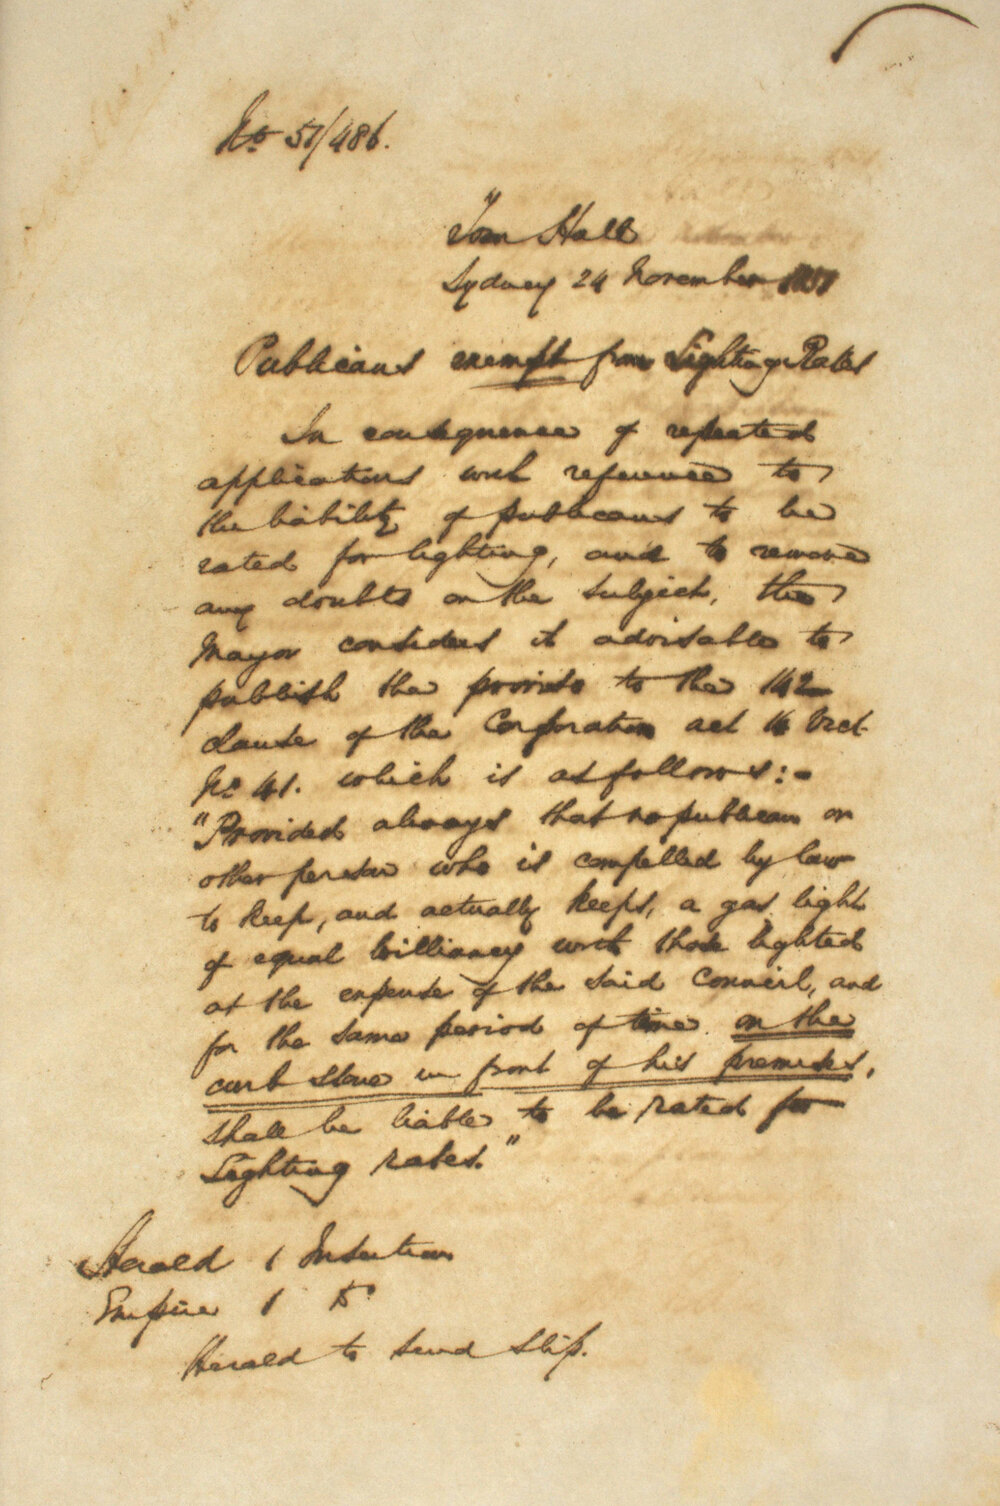 No 51/486.
Town Hall
Sydney 24 November 1851
Publicans exempt from Lighting Rates
In consequence of repeated
applications with reference to
the liability of publicans to be
rated for lighting, and to remove
any doubts on the subject, the
Mayor considers it advisable to
publish the proviso to the 142
clause of the Corporation act 14 Vict
No 41. which is as follows:-
"Provided always that no publican or
other person who is compelled by law
to keep, and actually keeps, a gas light
of equal brilliancy with those lighted
at the expense of the said Council, and
for the same period of time on the
curb stone in front of his premises,
shall be liable to be rated for
Lighting rates."
Herald 1 Insertion
Empire 1 Do
Herald to send slip.